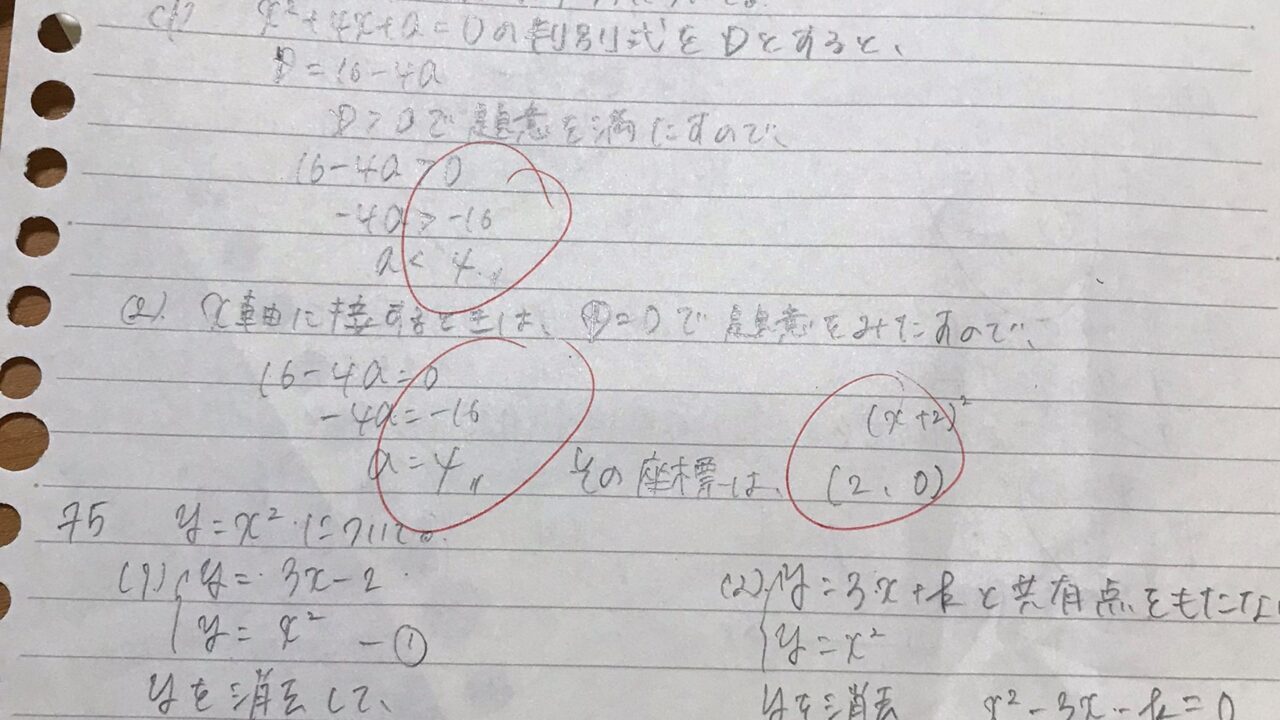 (1) x²+4x+a=0の判別式をDとすると、
D=16-4a
D>0で題意を満たすので、
16-4a>0
-4a>-16
a<4
(2) x軸に接するときは、D=0で題意をみたすので、
16-4a=0
-4a=-16
(x+2)²
a=4 その座標は、(2、0)
75 y=x²について。
(1) y=3x-2 (2) y=3x+kと共有点をもたない
y=x² -① y=x²
yを消去して、 yを消去 x²-3x-k=0